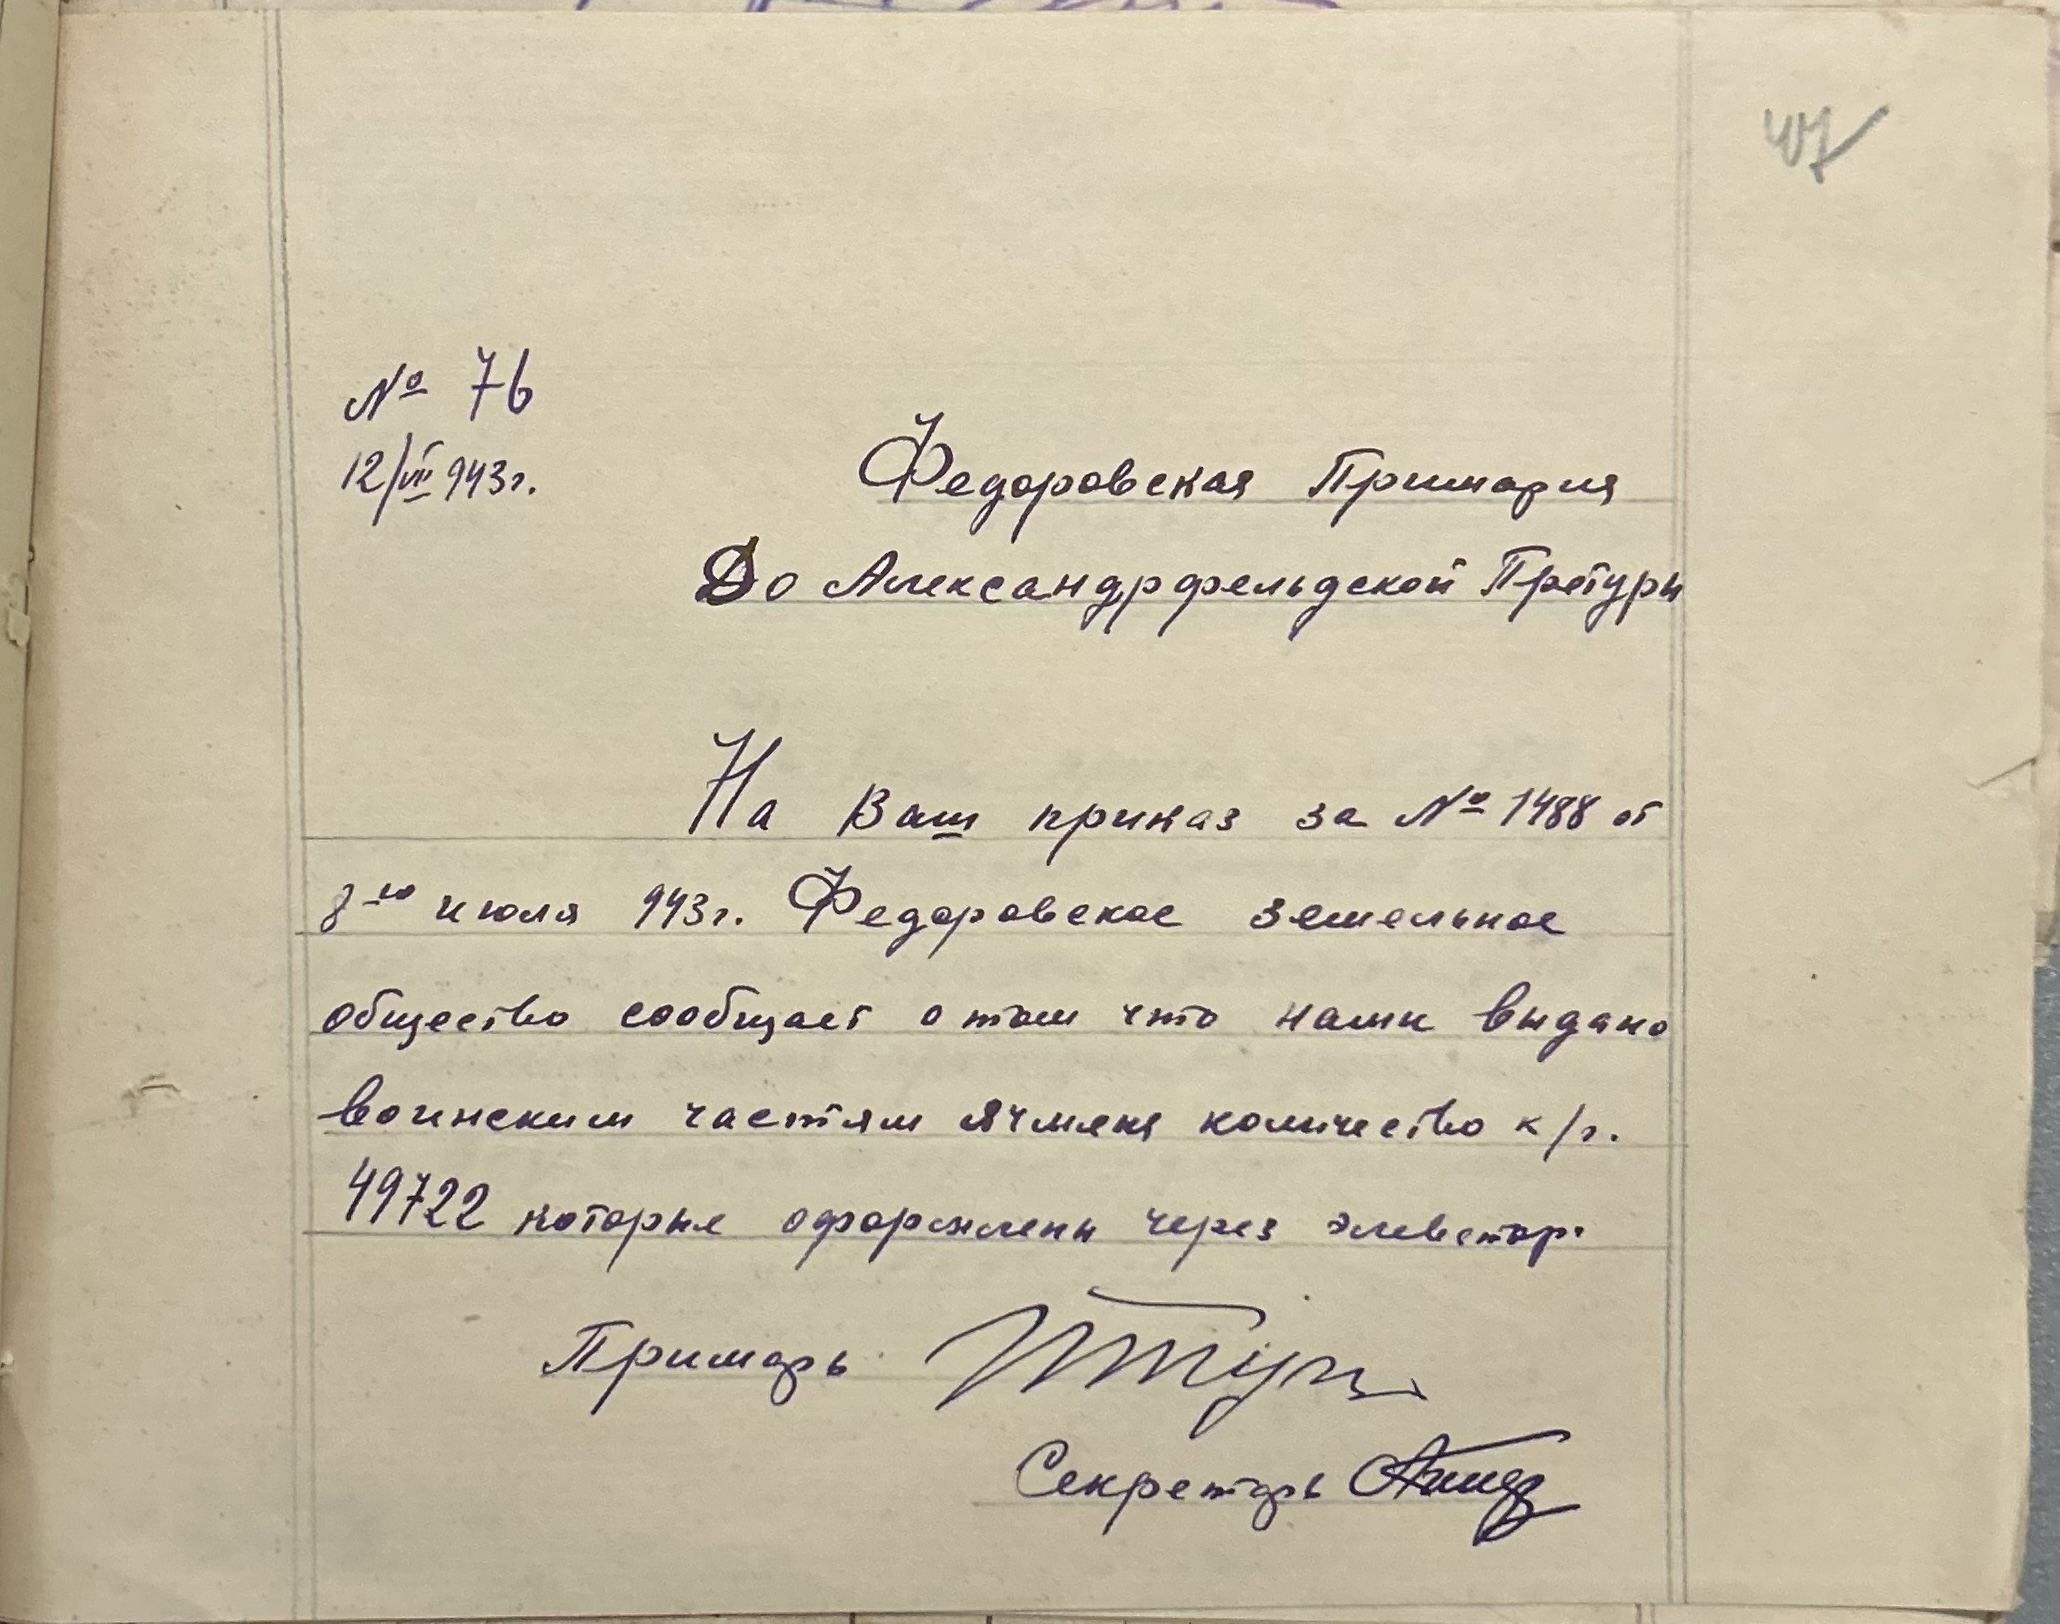 407
№ 76
12/VII 943г.
Федоровская Примария
До Александрфельдской Претуры
На Ваш приказ за № 1488 от
8го июля 943г. Федоровское земельное
общество сообщает о том что нами выдано
воинским частям ячменя количество к/г.
49722 которые оформлены через элеватор.
Примарь
Секретарь